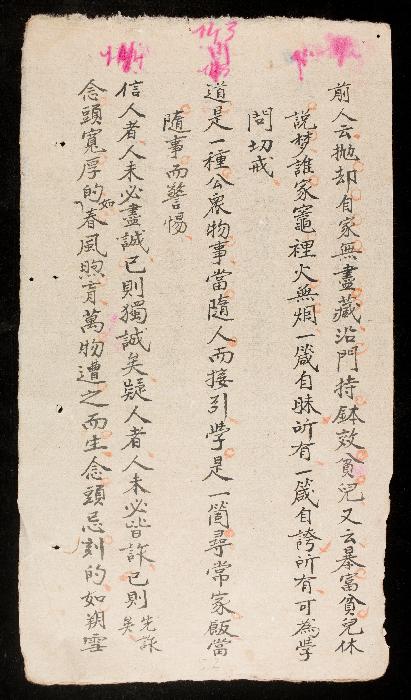 前人云抛却自家無盡藏沿門持鉢效貧兒又云暴富貧兒休
説梦誰家竈裡火無烟一箴自昧所有一箴自誇所有可為學
問切戒
道是一種公衆物事當隨人而接引學是一箇尋常家飯當
隨事而警惕
信人者人未必盡誠已則獨誠矣疑人者人未必皆詐已則先詐矣
念頭寬厚的如春風煦育萬物遭之而生念頭忌刻的如朔雪